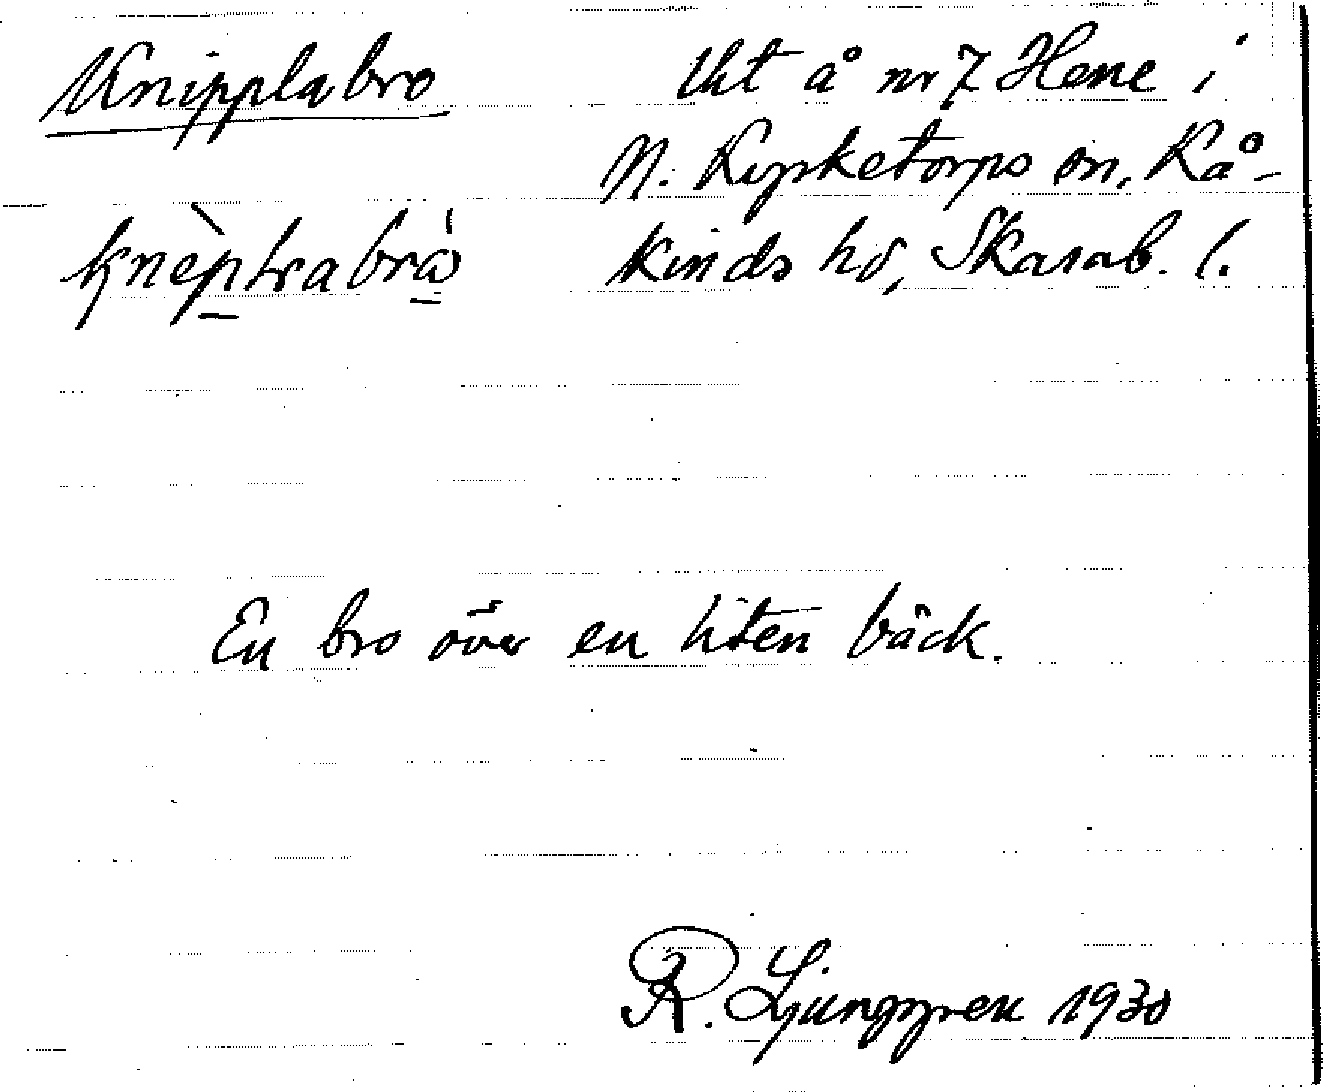 Knipplabro
Ukt å nr 7 Hene i
N. Kyrketorps sn, Kå-
knèplrabrà
kinds hd, Skarab. l.
En bro över en liten bäck.
R. Ljunggren 1930